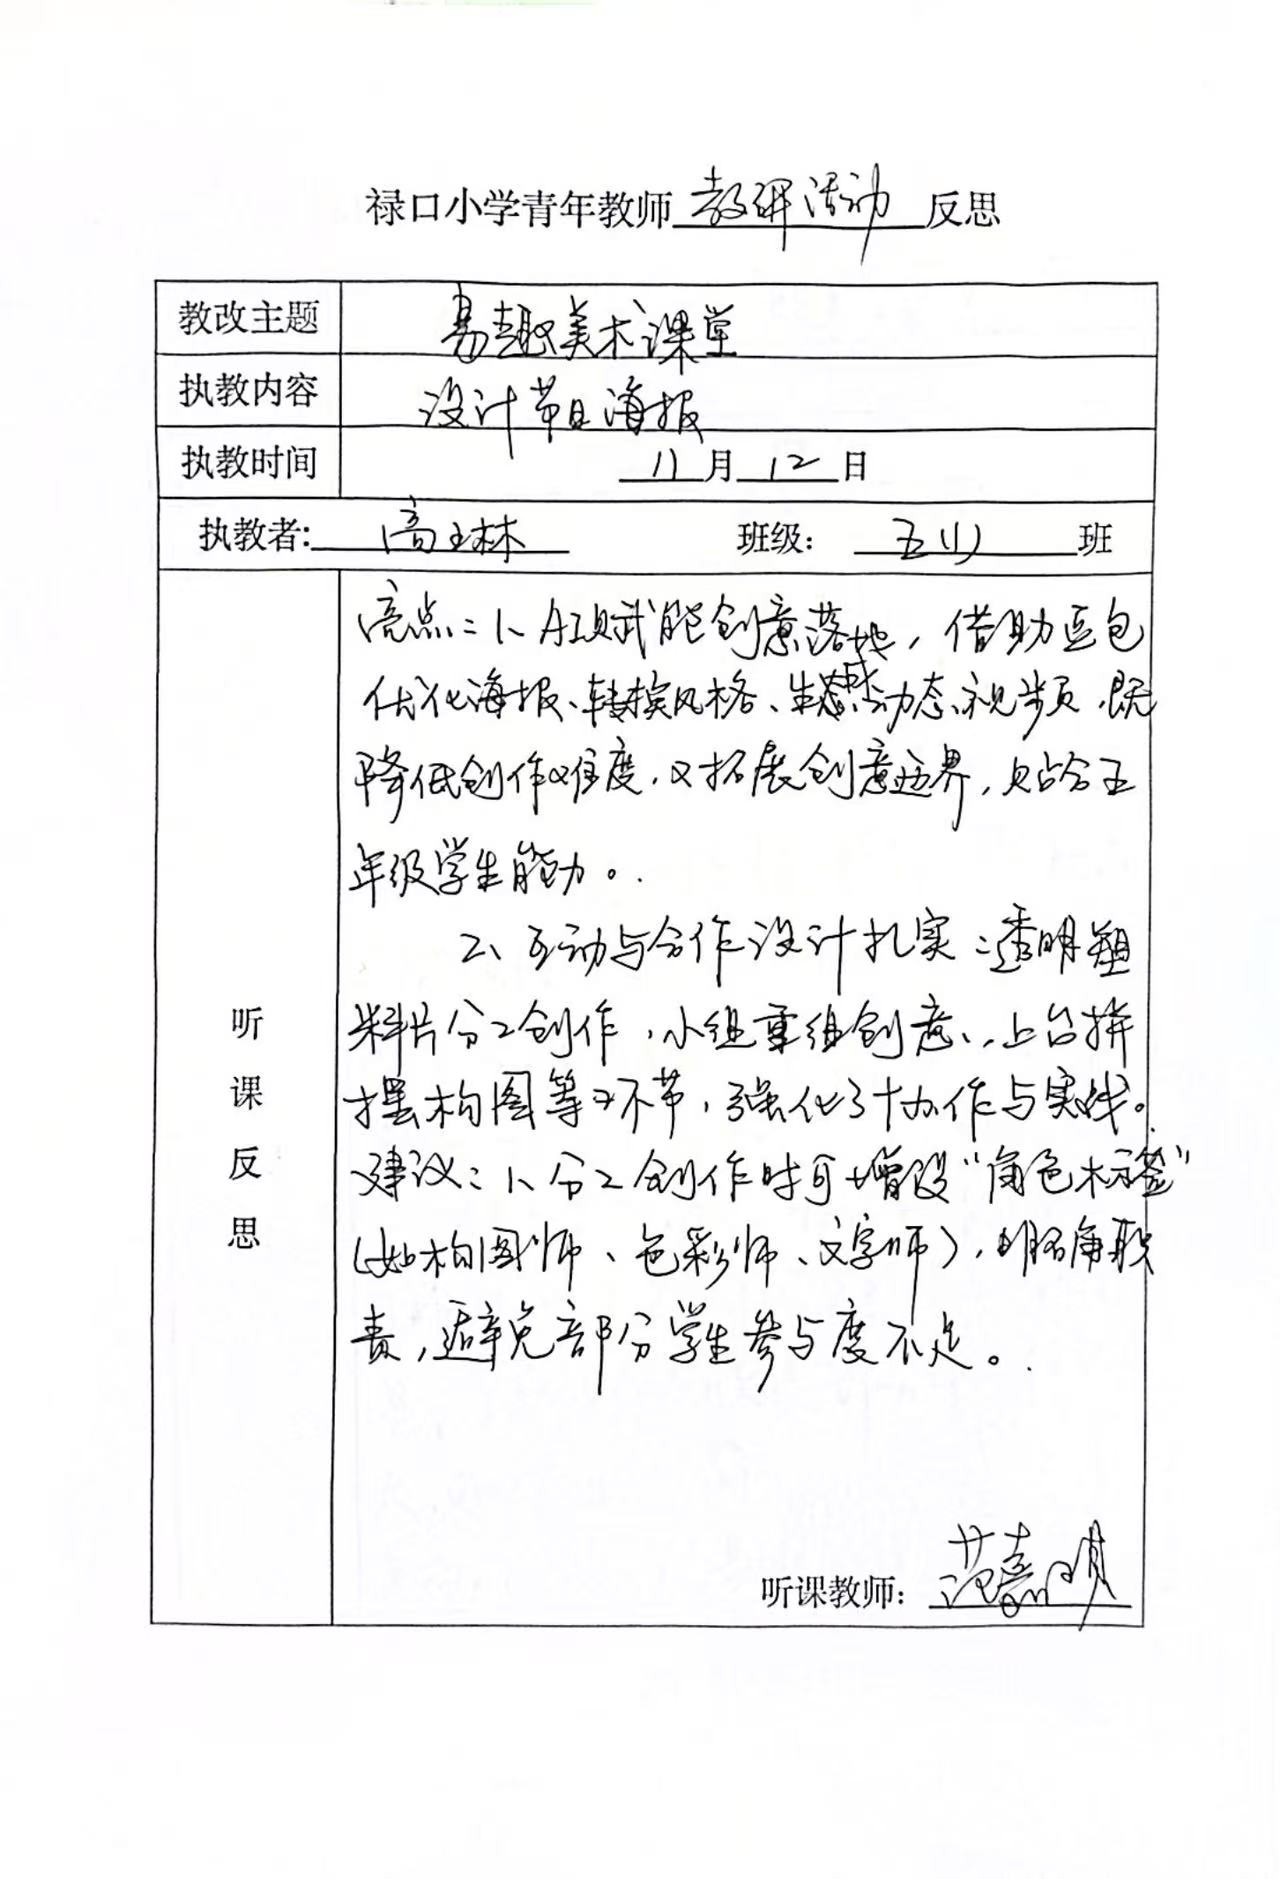 禄口小学青年教师教研活动反思
教改主题 易趣美术课堂
执教内容 设计节目海报
执教时间 11月12日
执教者:高玉林 班级:五(1)班
听课反思
亮点:1、AI赋能创意落地,借助豆包
优化海报、转换风格、生成动态视频,既
降低创作难度,又拓展创意边界,贴合五
年级学生能力。
2、互动与合作设计扎实:透明塑
料片分工创作,小组重组创意,上台拼
摆构图等环节,强化了协作与实践。
建议:1、分工创作时可增设“角色标签”
(如构图师、色彩师、文字师),明确职
责,避免部分学生参与度不足。
听课教师:范嘉明